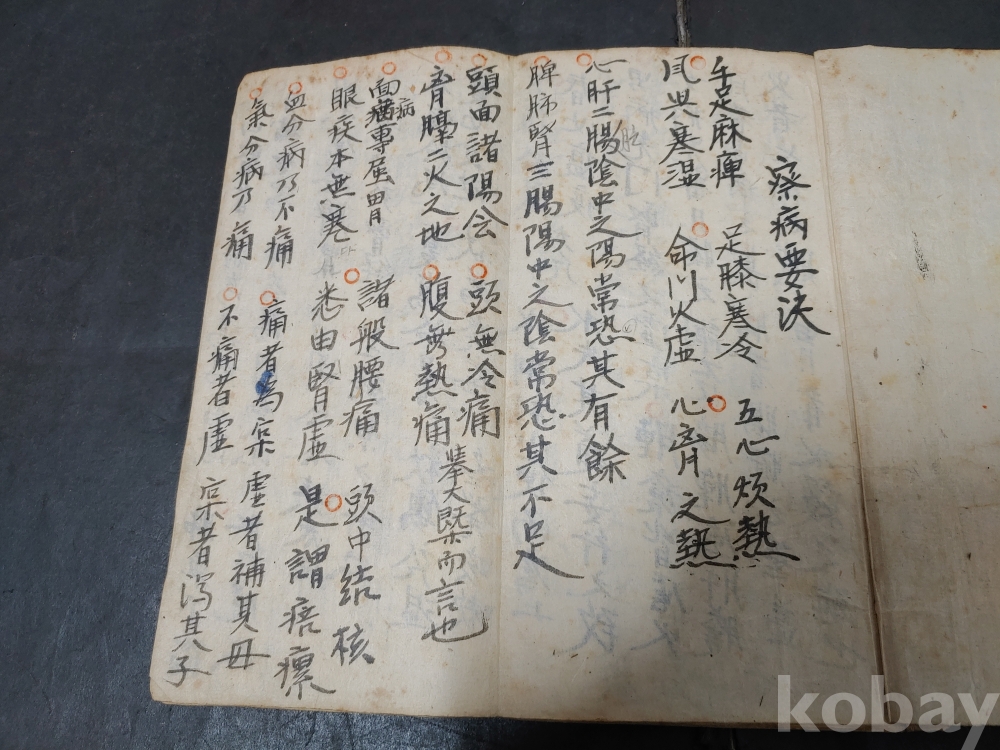 察病要决
手足麻痺 足膝寒冷 五心煩熱
風與寒湿 命门火虛 心育之熱
心肝二腸陰中之陽常恐其有餘
脏
脾肺腎三腸陽中之陰常恐其不足
頭面諸陽会 頭無冷痛
育膏二火之地 腹無熱痛 举大槩而言也
面病專屈胃 諸般腰痛 頭中結核
眼疾本無寒 悉由腎虛 是謂痞瘰
血分病乃不痛 痛者為実 虛者補其母
氣分病乃痛 不痛者虛 実者瀉其子
kobay